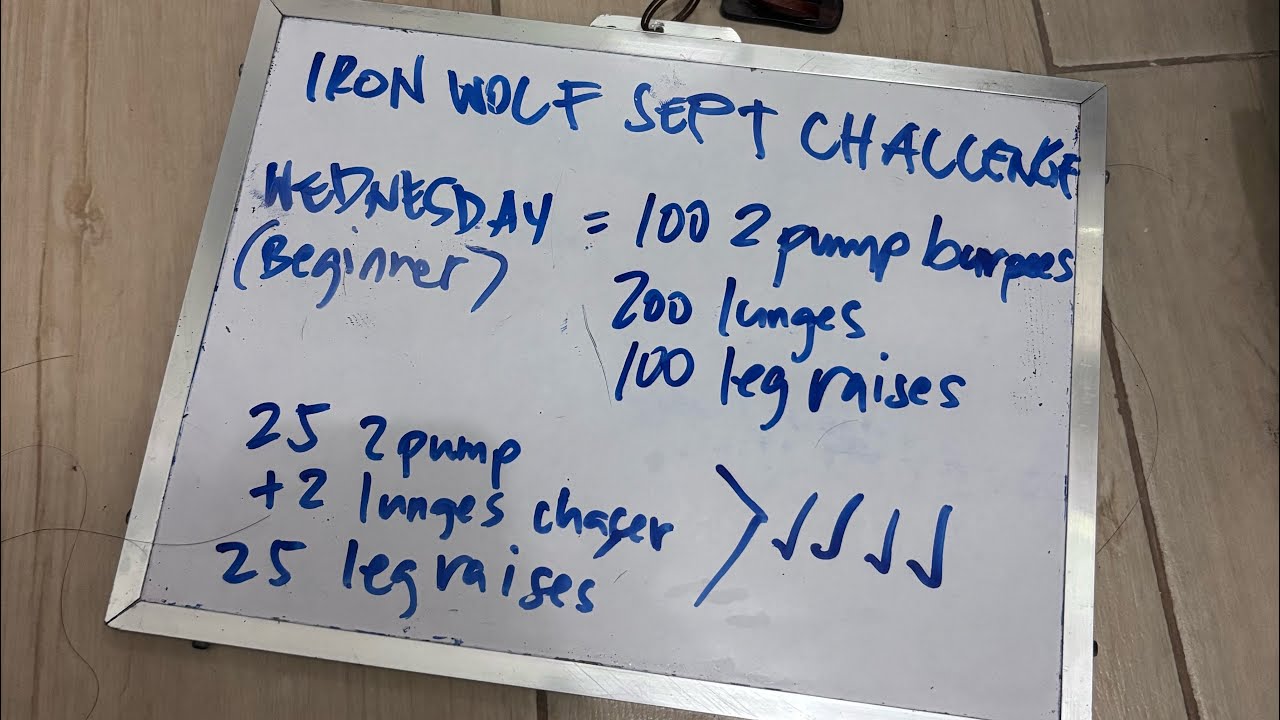 IRON WOLF SEPT CHALLENGE
WEDNESDAY = 100 2 pump burpees
(Beginner)
200 lunges
100 leg raises
25 2 pump
+2 lunges chaser
25 leg raises